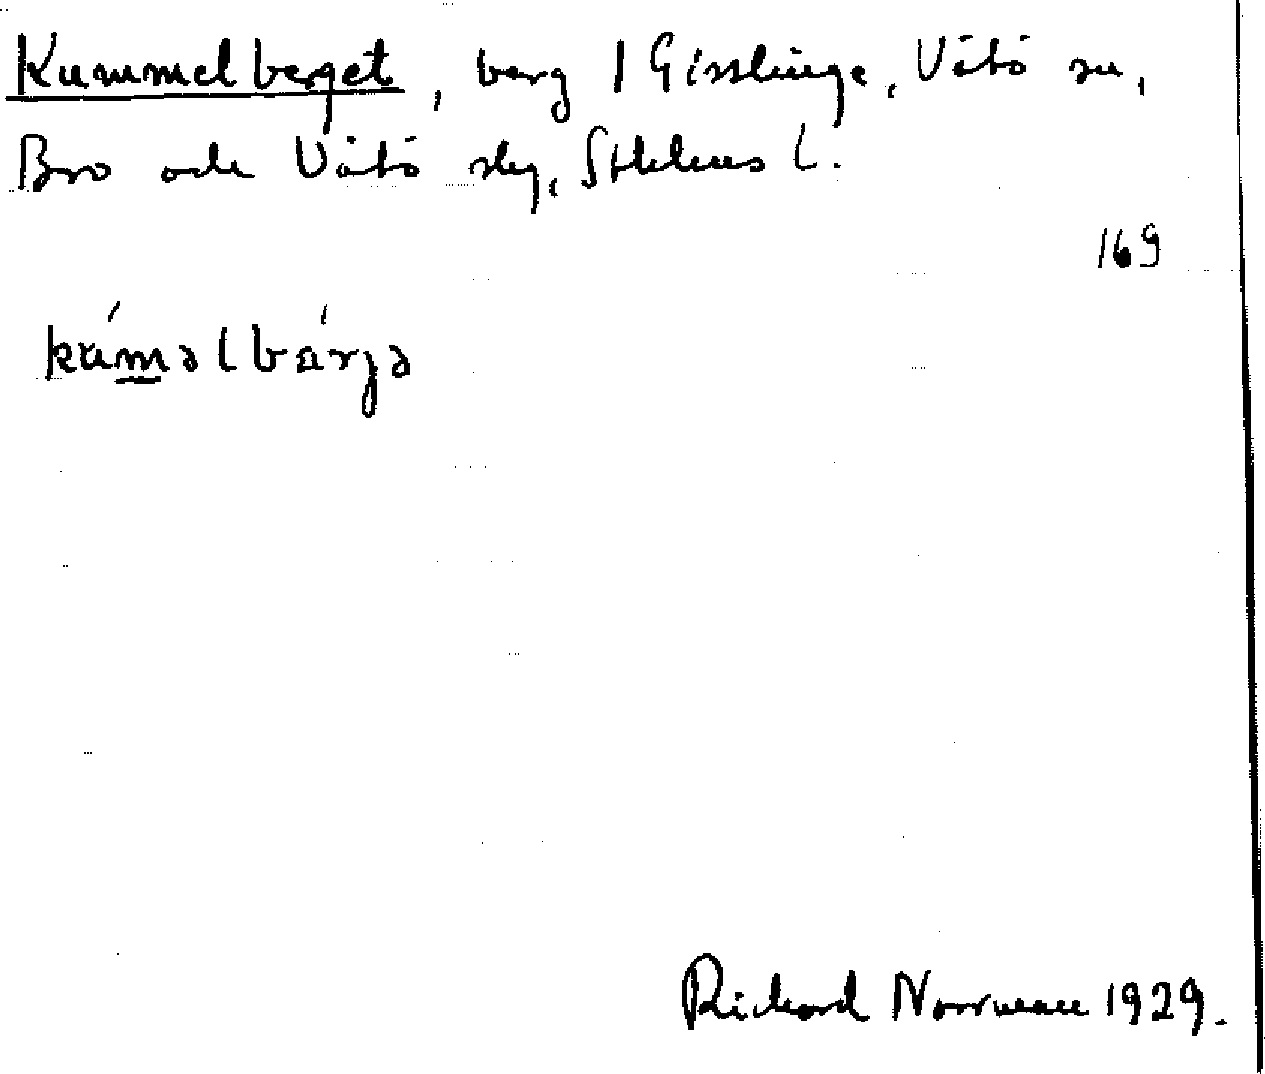 Kummelberget, berg i Gisslinge, Vätö sn,
Bro och Vätö skg, Sthlms l.
169
kúməlbárjə
Richard Norrman 1929.